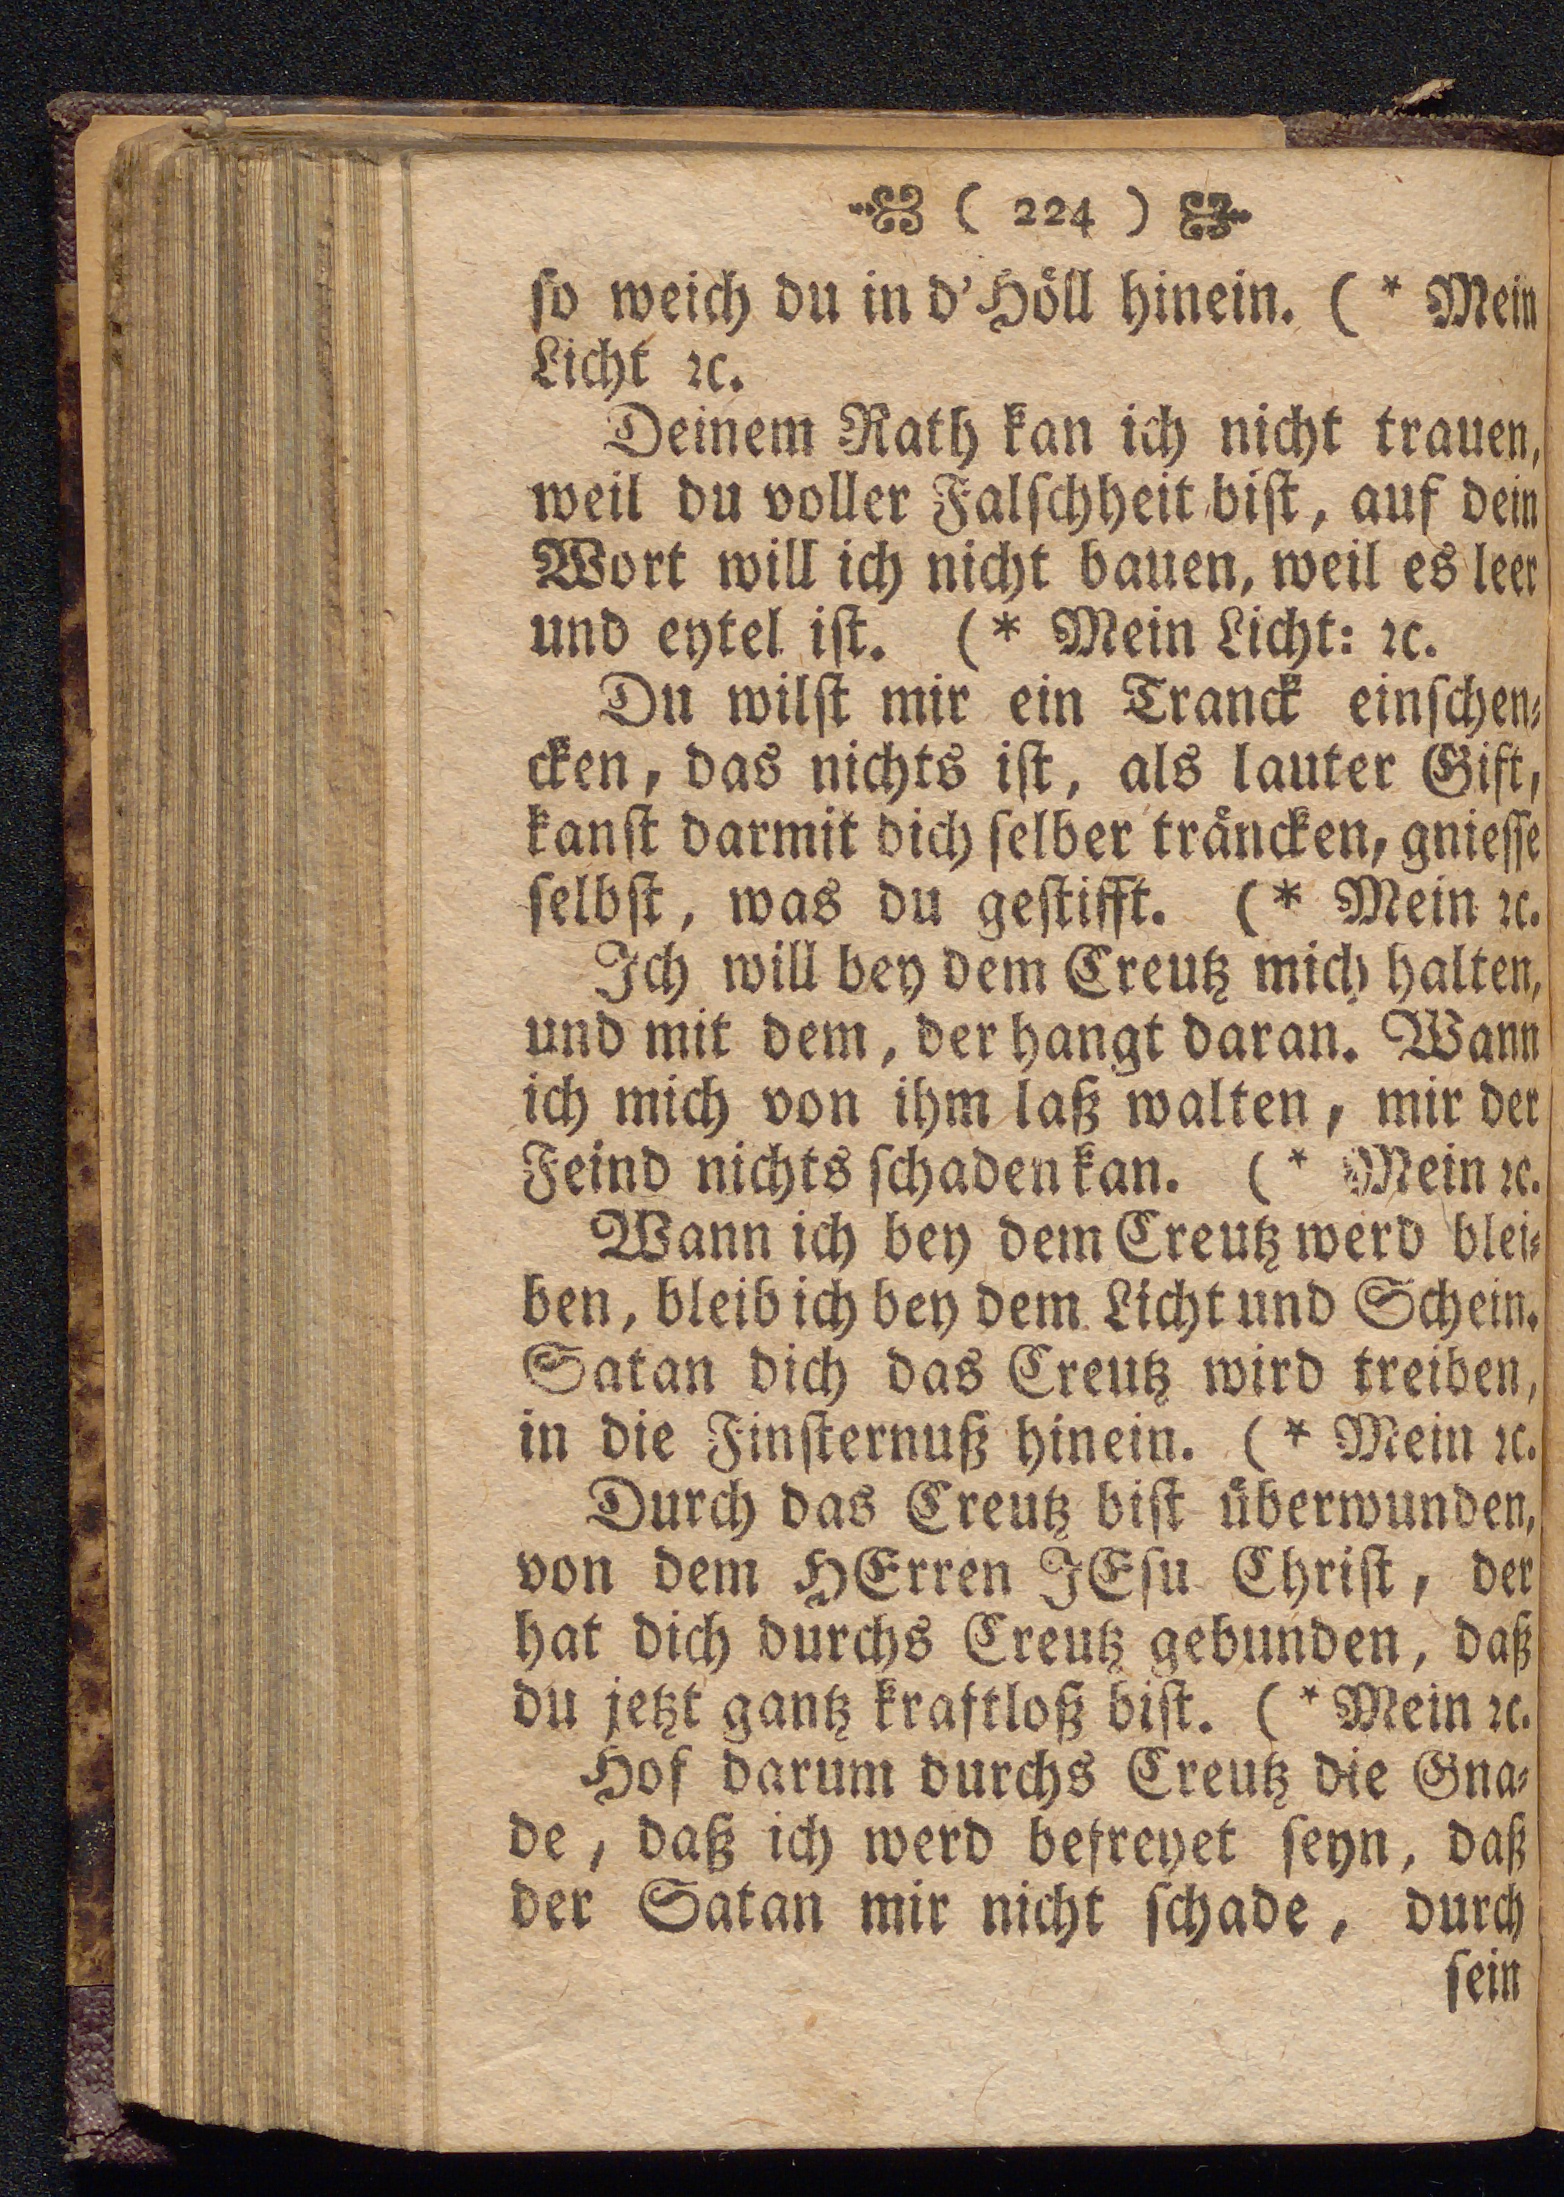 ( 224 )
ſo weich du in d'Höll hinein. ( * Mein
Licht ꝛc.
Deinem Rath kan ich nicht trauen,
weil du voller Falſchheit biſt, auf dein
Wort will ich nicht bauen, weil es leer
und eytel iſt. (* Mein Licht: ꝛc.
Du wilſt mir ein Tranck einſchen⸗
cken, das nichts iſt, als lauter Gift,
kanſt darmit dich ſelber träncken, gnieſſe
ſelbſt, was du geſtifft. (* Mein ꝛc.
Ich will bey dem Creutz mich halten,
und mit dem, der hangt daran. Wann
ich mich von ihm laß walten, mir der
Feind nichts ſchaden kan. ( * Mein ꝛc.
Wann ich bey dem Creutz werd blei⸗
ben, bleib ich bey dem Licht und Schein.
Satan dich das Creutz wird treiben,
in die Finſternuß hinein. (* Mein ꝛc.
Durch das Creutz biſt überwunden,
von dem HErren JEſu Chriſt, der
hat dich durchs Creutz gebunden, daß
du jetzt gantz kraftloß biſt. ( * Mein ꝛc.
Hof darum durchs Creutz die Gna⸗
de, daß ich werd befreyet ſeyn, daß
der Satan mir nicht ſchade, durch
ſein